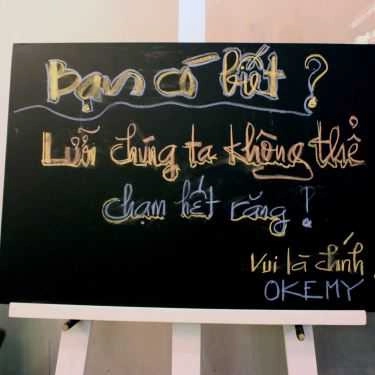 Bạn có biết ?
Lưỡi chúng ta không thể
chạm hết răng !
Vui là chính
OKEMY